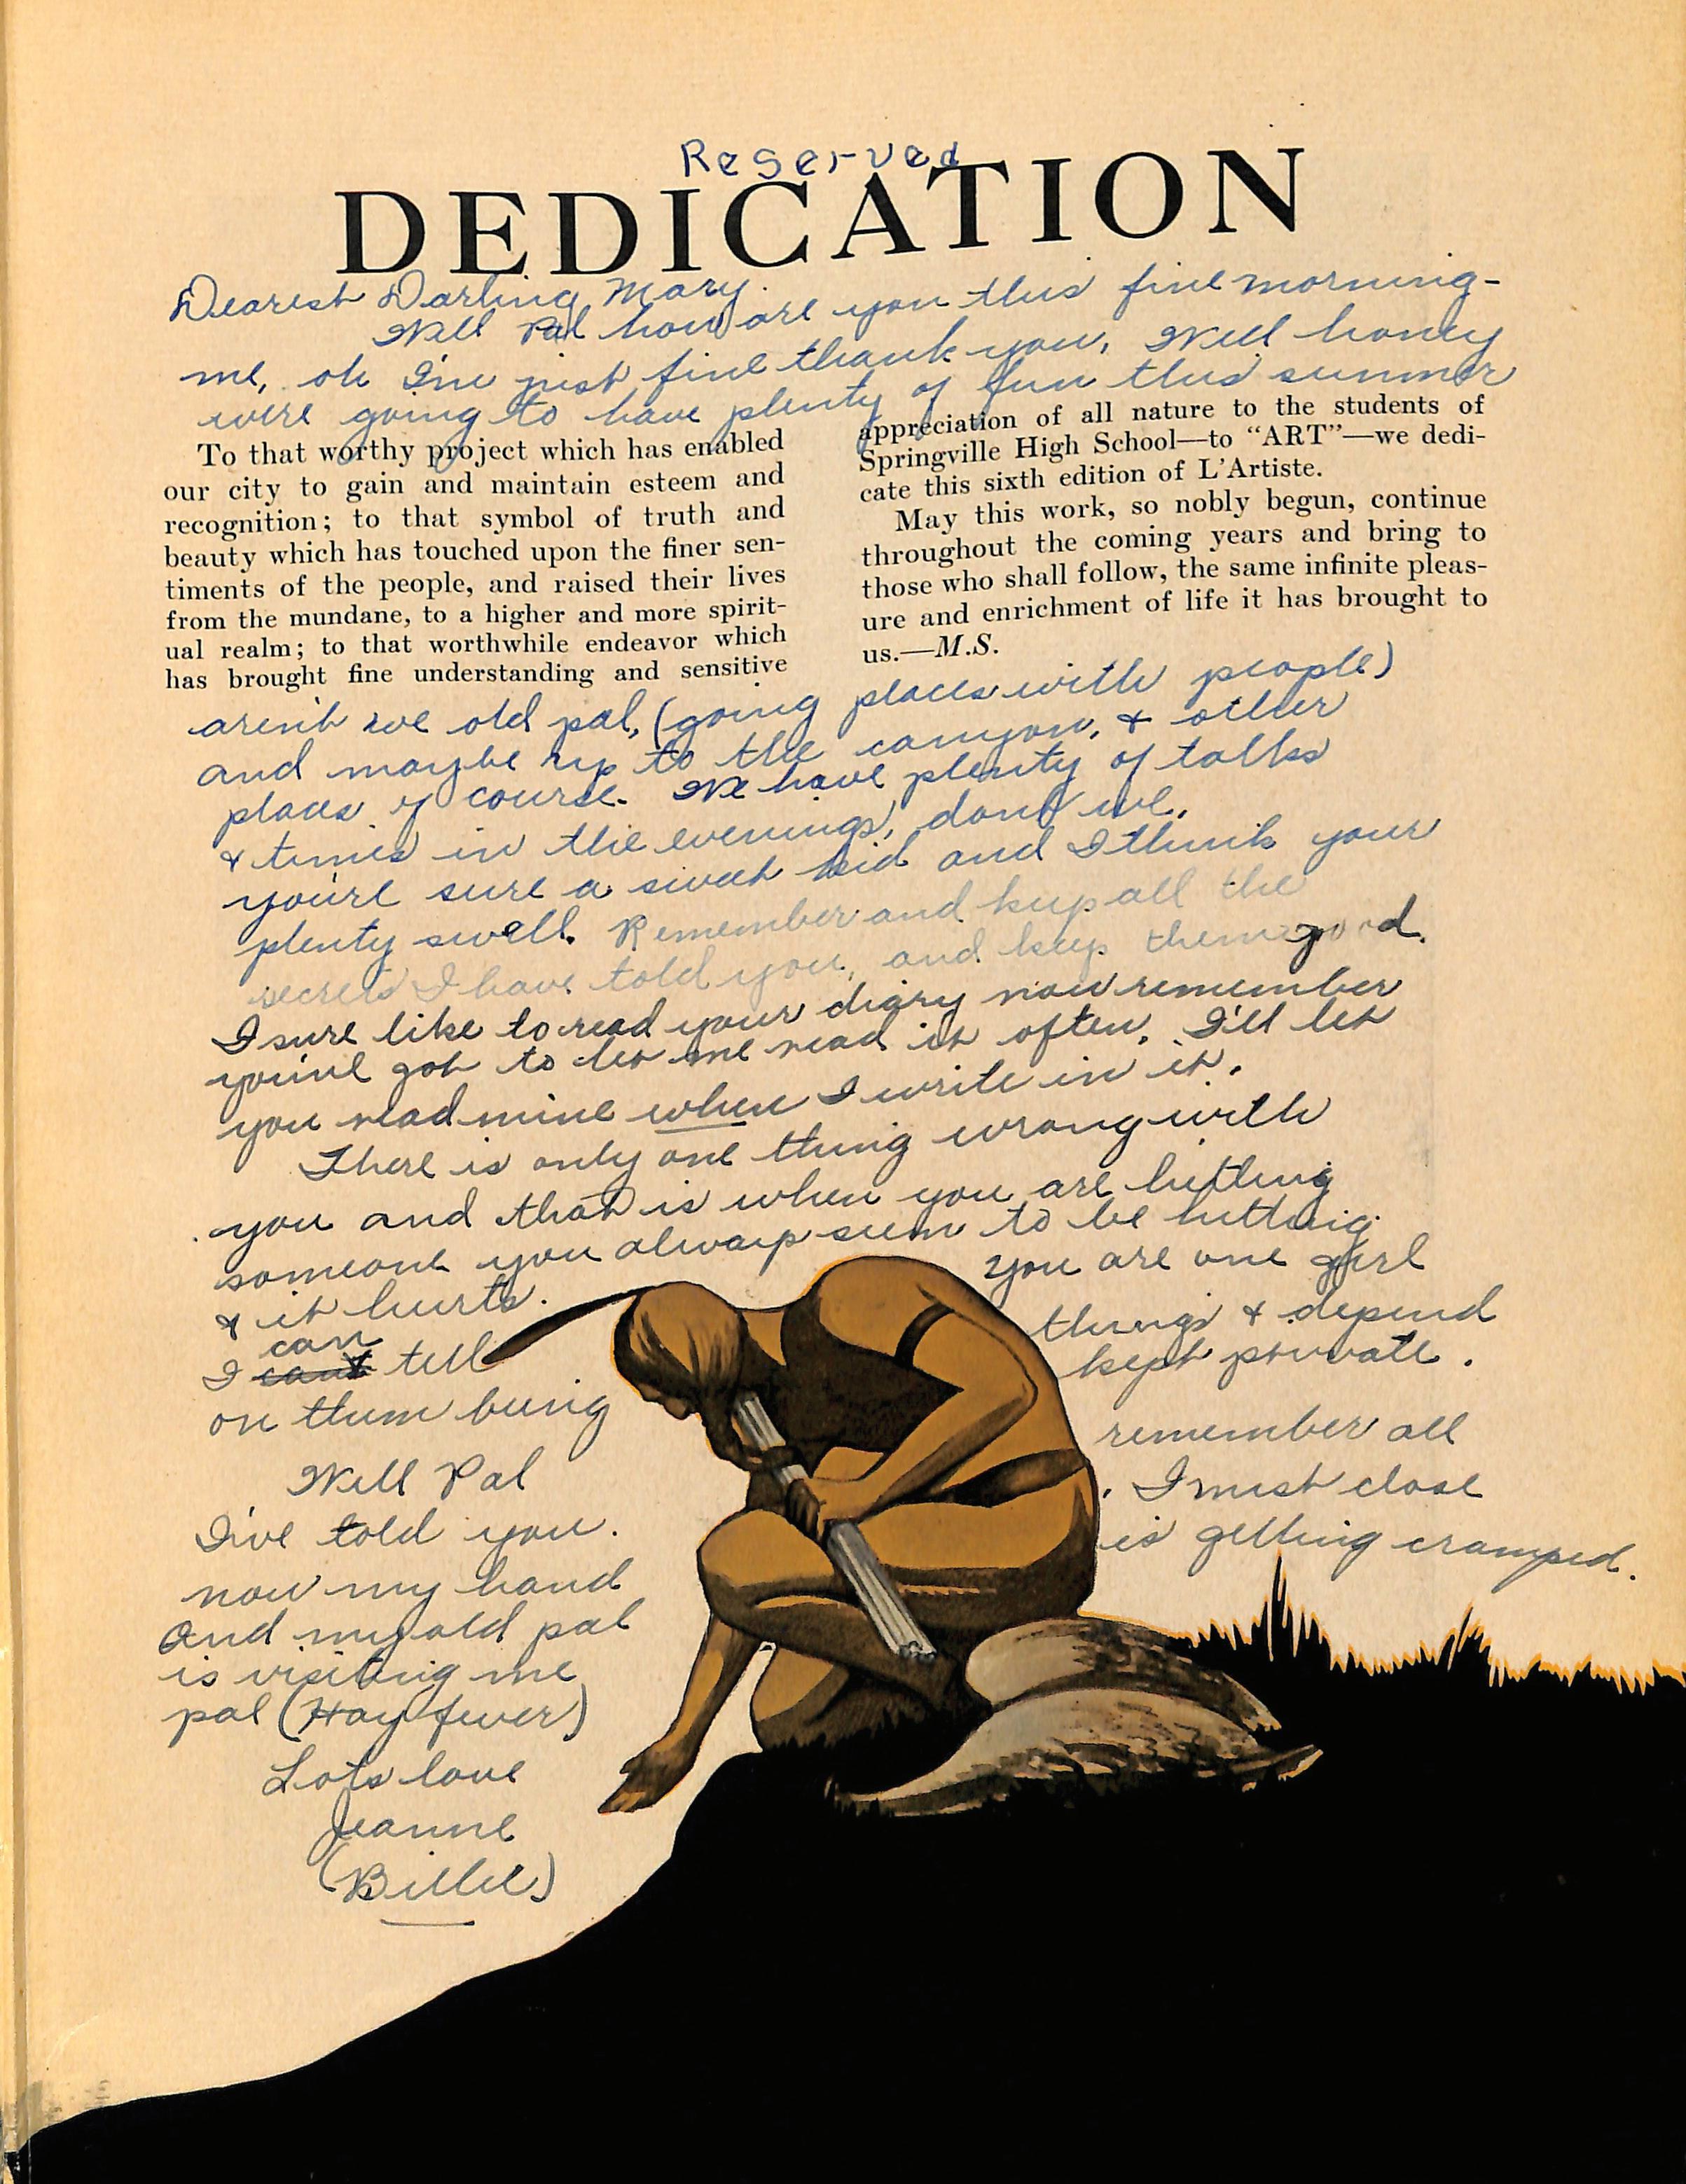 Reserved
DEDICATION
Dearest Darling Mary.
Well Pal how are you this fine morning-
me, oh I'm just fine thank you, Well honey
were going to have plenty of fun this summer
To that worthy project which has enabled
our city to gain and maintain esteem and
recognition; to that symbol of truth and
beauty which has touched upon the finer sen-
timents of the people, and raised their lives
from the mundane, to a higher and more spirit-
ual realm; to that worthwhile endeavor which
has brought fine understanding and sensitive
appreciation of all nature to the students of
Springville High School—to "ART"—we dedi-
cate this sixth edition of L'Artiste.
May this work, so nobly begun, continue
throughout the coming years and bring to
those who shall follow, the same infinite pleas-
ure and enrichment of life it has brought to
us.—M.S.
aren't we old pal, (going places with people)
and maybe up to the canyon, & other
places of course. We have plenty of talks
& times in the evenings, don't we.
you're sure a sweet kid and I think your
plenty swell. Remember and keep all the
secrets I have told you, and keep them good.
I sure like to read your diary now remember
you've got to let me read it often. I'll let
you read mine when I write in it.
There is only one thing wrong with
you and that is when you are hitting
someone you always seem to be hitting
& it hurts. You are one girl
can
I can't tell things & depend
on them being kept private.
Well Pal remember all
I've told you. I must close
now my hand is getting cramped.
And my old pal
is visiting me
pal (Hay fever)
Lots love
Jeanne
(Billie)